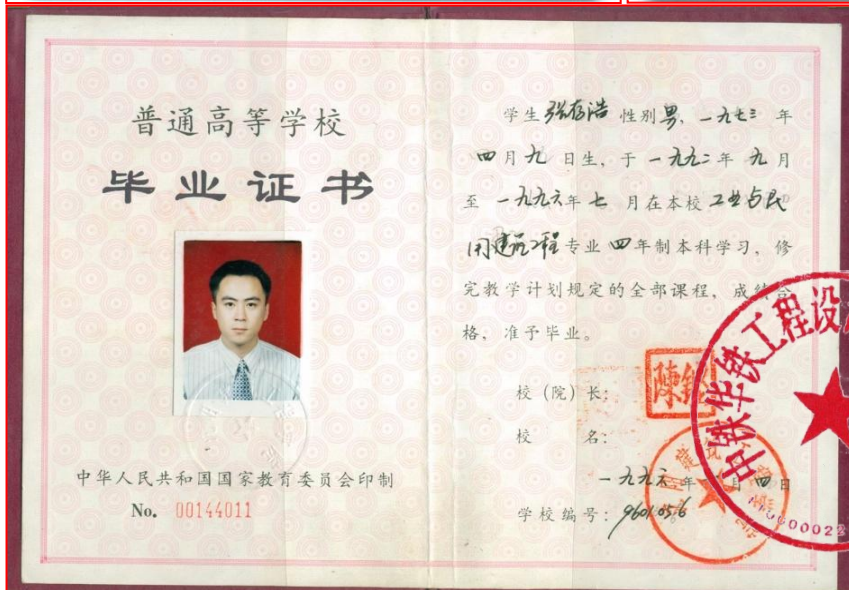 普通高等学校
毕业证书
中华人民共和国国家教育委员会印制
No. 00144011
学生张存浩 性别男, 一九七三 年
四月九 日生, 于 一九九二年 九 月
至 一九九六年 七 月在本校 工业与民
用建筑工程 专业 四 年制本科学习, 修
完教学计划规定的全部课程, 成绩合
格, 准予毕业。
校（院）长:
校 名:
一九九六 年 月 四 日
学校编号:
中铁华铁工程设